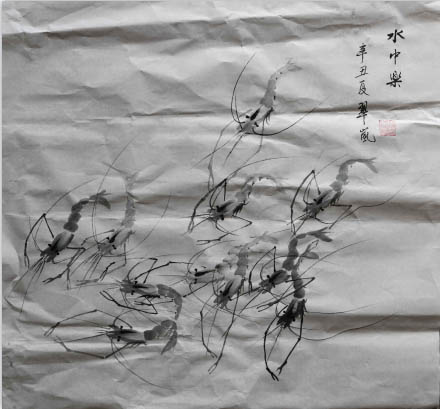 水中樂
辛丑夏翠嵐